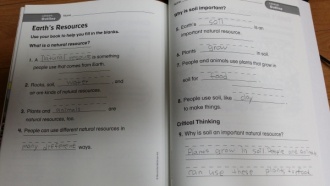 Earth's Resources
Use your book to help you fill in the blanks.
What is a natural resource?
1. A natural resource is something
people use that comes from Earth.
2. Plants, soil, and
air are kinds of natural resources.
3. Plants and animals are
natural resources, too.
4. People can use different natural resources in
many different ways.
Why is soil important?
5. Earth's soil is an
important natural resource.
6. Plants grow in soil.
7. People and animals use plants that grow in
soil for food
8. People use soil, like clay
to make things.
Critical Thinking
9. Why is soil an important natural resource?
Plants grow in soil
can use these